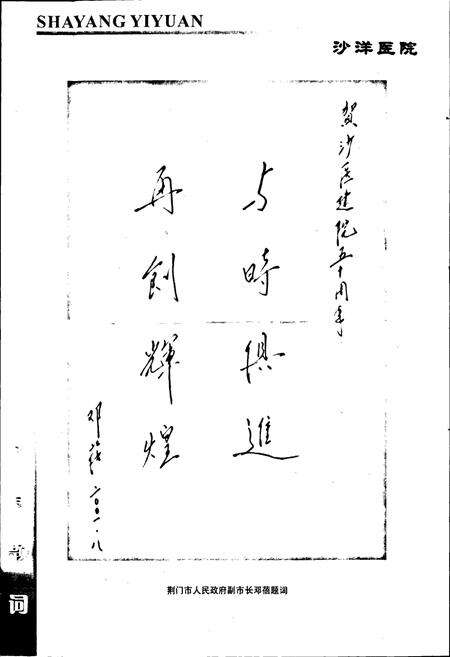 SHAYANG YIYUAN
沙洋医院
贺沙医建院五十周年
与時俱進
再創輝煌
邓蓓 二〇〇一.八
荆门市人民政府副市长邓蓓题词
词